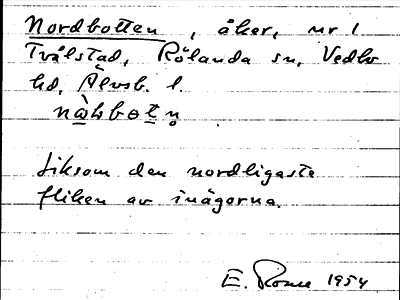 Nordbotten, åker, nr 1
Tvålstad, Rölanda sn, Vedbo
hd, Älvsb. l.
Liksom den nordligaste
fliken av inägorna.
E. Rosell 1954